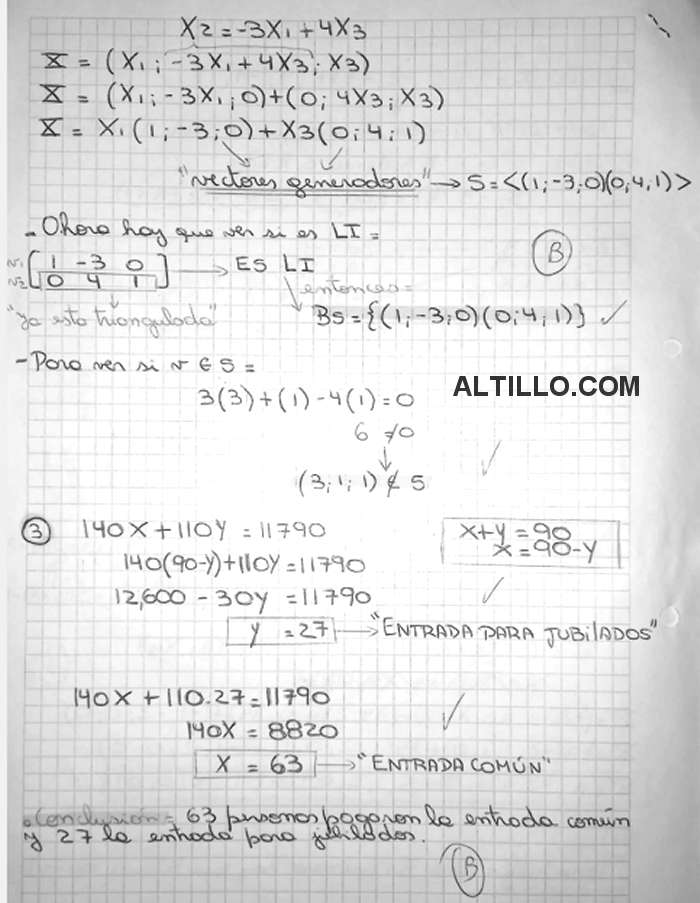 X2 = -3X1 + 4X3
X = (X1; -3X1 + 4X3; X3)
X = (X1; -3X1; 0) + (0; 4X3; X3)
X = X1(1; -3; 0) + X3(0; 4; 1)
"vectores generadores" → S = <(1; -3; 0)(0; 4; 1)>
- Ahora hay que ver si es LI =
B
v1 [ 1 -3 0 ] → ES LI
v2 [ 0 4 1 ]
entonces =
"ya esta triangulada"
BS = {(1; -3; 0)(0; 4; 1)} ✓
- Para ver si v ∈ S =
ALTILLO.COM
3(3) + (1) - 4(1) = 0
6 ≠ 0
(3; 1; 1) ∉ S
✓
3 140X + 110Y = 11790
X + Y = 90
X = 90 - Y
140(90 - Y) + 110Y = 11790
12,600 - 30Y = 11790 ✓
Y = 27 → "ENTRADA PARA JUBILADOS"
140X + 110.27 = 11790
140X = 8820 ✓
X = 63 → "ENTRADA COMÚN"
• Conclusión = 63 personas pagaron la entrada común
y 27 la entrada para jubilados.
B